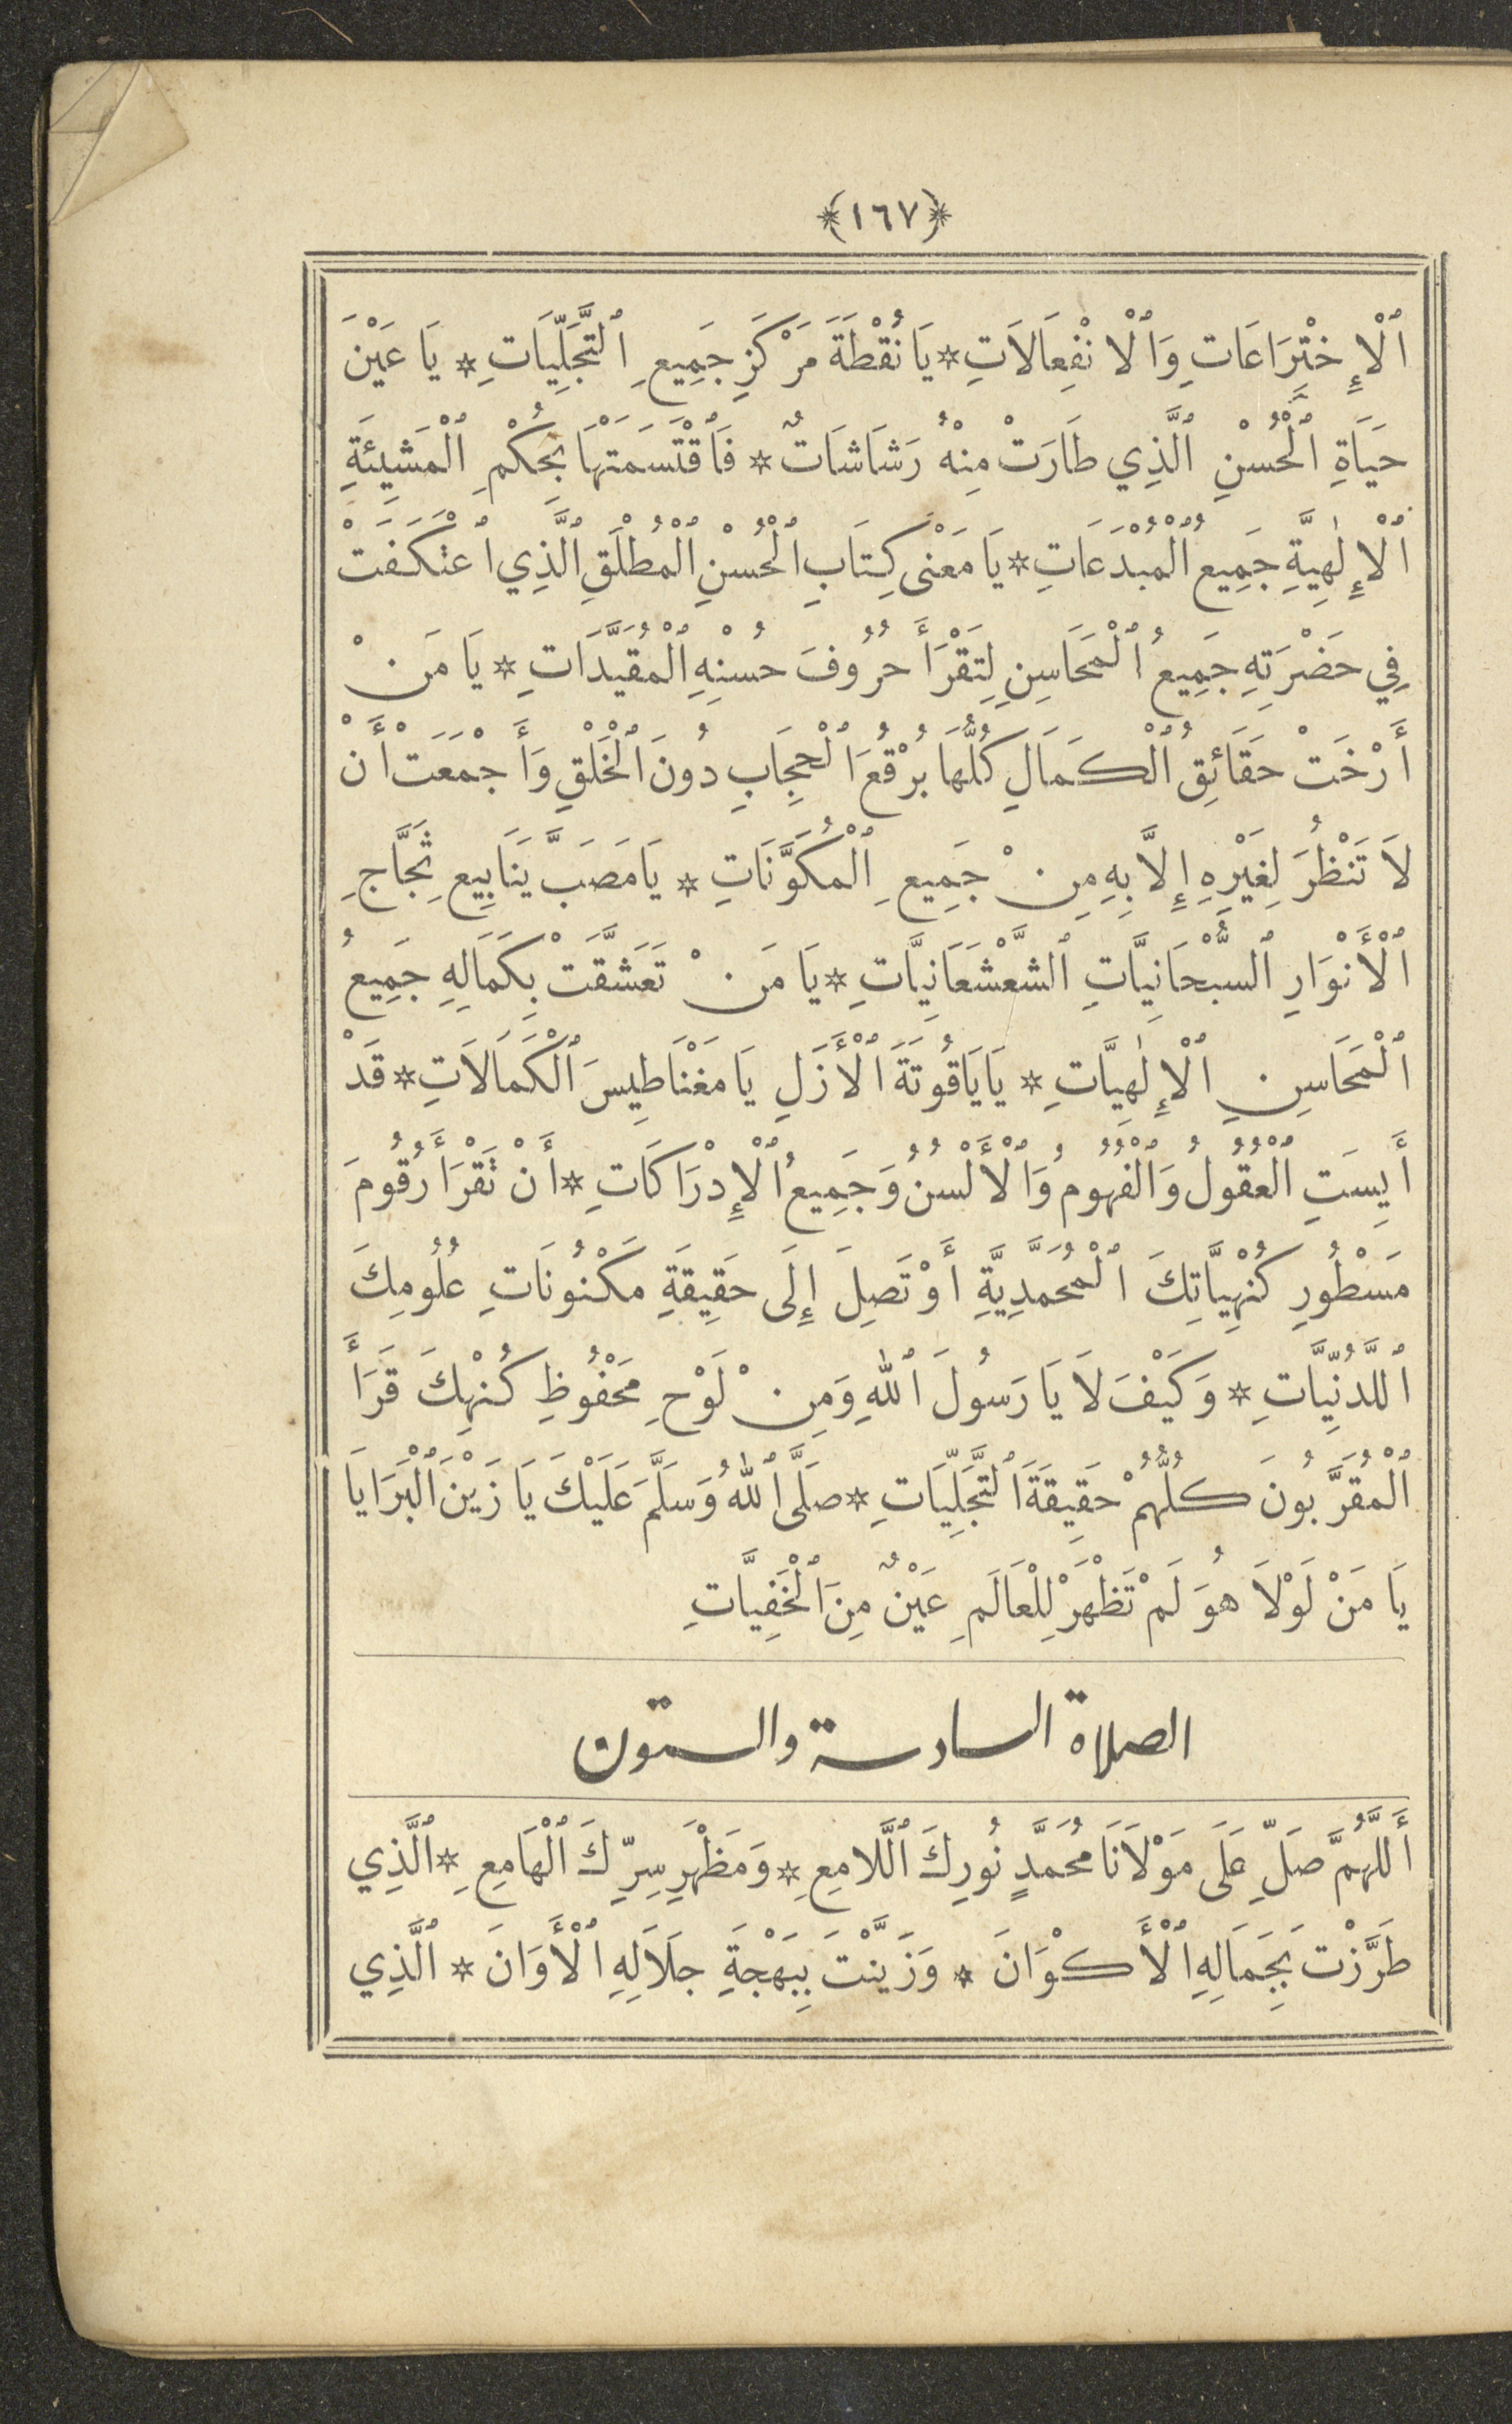 ﴿١٦٧﴾
ٱلْإِخْتِرَاعَاتِ وَٱلْانْفِعَالَاتِ * يَا نُقْطَةَ مَرْكَزِ جَمِيعِ ٱلتَّجَلِّيَاتِ * يَا عَيْنَ
حَيَاةِ ٱلْحُسْنِ ٱلَّذِي طَارَتْ مِنْهُ رَشَاشَاتٌ * فَٱقْتَسَمَتْهَا بِحُكْمِ ٱلْمَشِيئَةِ
ٱلْإِلٰهِيَّةِ جَمِيعُ ٱلْمُبْدَعَاتِ * يَا مَعْنَى كِتَابِ ٱلْحُسْنِ ٱلْمُطْلَقِ ٱلَّذِي ٱعْتَكَفَتْ
فِي حَضْرَتِهِ جَمِيعُ ٱلْمَحَاسِنِ لِتَقْرَأَ حُرُوفَ حُسْنِهِ ٱلْمُقَيَّدَاتِ * يَا مَنْ
أَرْخَتْ حَقَائِقُ ٱلْكَمَالِ كُلُّهَا بُرْقُعَ ٱلْحِجَابِ دُونَ ٱلْخَلْقِ وَأَجْمَعَتْ أَنْ
لَا تَنْظُرَ لِغَيْرِهِ إِلَّا بِهِ مِنْ جَمِيعِ ٱلْمُكَوَّنَاتِ * يَا مَصَبَّ يَنَابِيعِ ثَجَّاجِ
ٱلْأَنْوَارِ ٱلسُّبْحَانِيَّاتِ ٱلشَّعْشَعَانِيَّاتِ * يَا مَنْ تَعَشَّقَتْ بِكَمَالِهِ جَمِيعُ
ٱلْمَحَاسِنِ ٱلْإِلٰهِيَّاتِ * يَا يَاقُوتَةَ ٱلْأَزَلِ يَا مَغْنَاطِيسَ ٱلْكَمَالَاتِ * قَدْ
أَيِسَتِ ٱلْعُقُولُ وَٱلْفُهُومُ وَٱلْأَلْسُنُ وَجَمِيعُ ٱلْإِدْرَاكَاتِ * أَنْ تَقْرَأَ رُقُومَ
مَسْطُورِ كُنْهِيَّاتِكَ ٱلْمُحَمَّدِيَّةِ أَوْ تَصِلَ إِلَى حَقِيقَةِ مَكْنُونَاتِ عُلُومِكَ
ٱللَّدُنِّيَّاتِ * وَكَيْفَ لَا يَا رَسُولَ ٱللهِ وَمِنْ لَوْحِ مَحْفُوظِ كُنْهِكَ قَرَأَ
ٱلْمُقَرَّبُونَ كُلُّهُمْ حَقِيقَةَ ٱلتَّجَلِّيَاتِ * صَلَّى ٱللهُ وَسَلَّمَ عَلَيْكَ يَا زَيْنَ ٱلْبَرَايَا
يَا مَنْ لَوْلَا هُوَ لَمْ تَظْهَرْ لِلْعَالَمِ عَيْنٌ مِنَ ٱلْخَفِيَّاتِ
الصلاة السادسة والستون
أَللَّهُمَّ صَلِّ عَلَى مَوْلَانَا مُحَمَّدٍ نُورِكَ ٱللَّامِعِ * وَمَظْهَرِ سِرِّكَ ٱلْهَامِعِ * ٱلَّذِي
طَرَّزْتَ بِجَمَالِهِ ٱلْأَكْوَانَ * وَزَيَّنْتَ بِبَهْجَةِ جَلَالِهِ ٱلْأَوَانَ * ٱلَّذِي